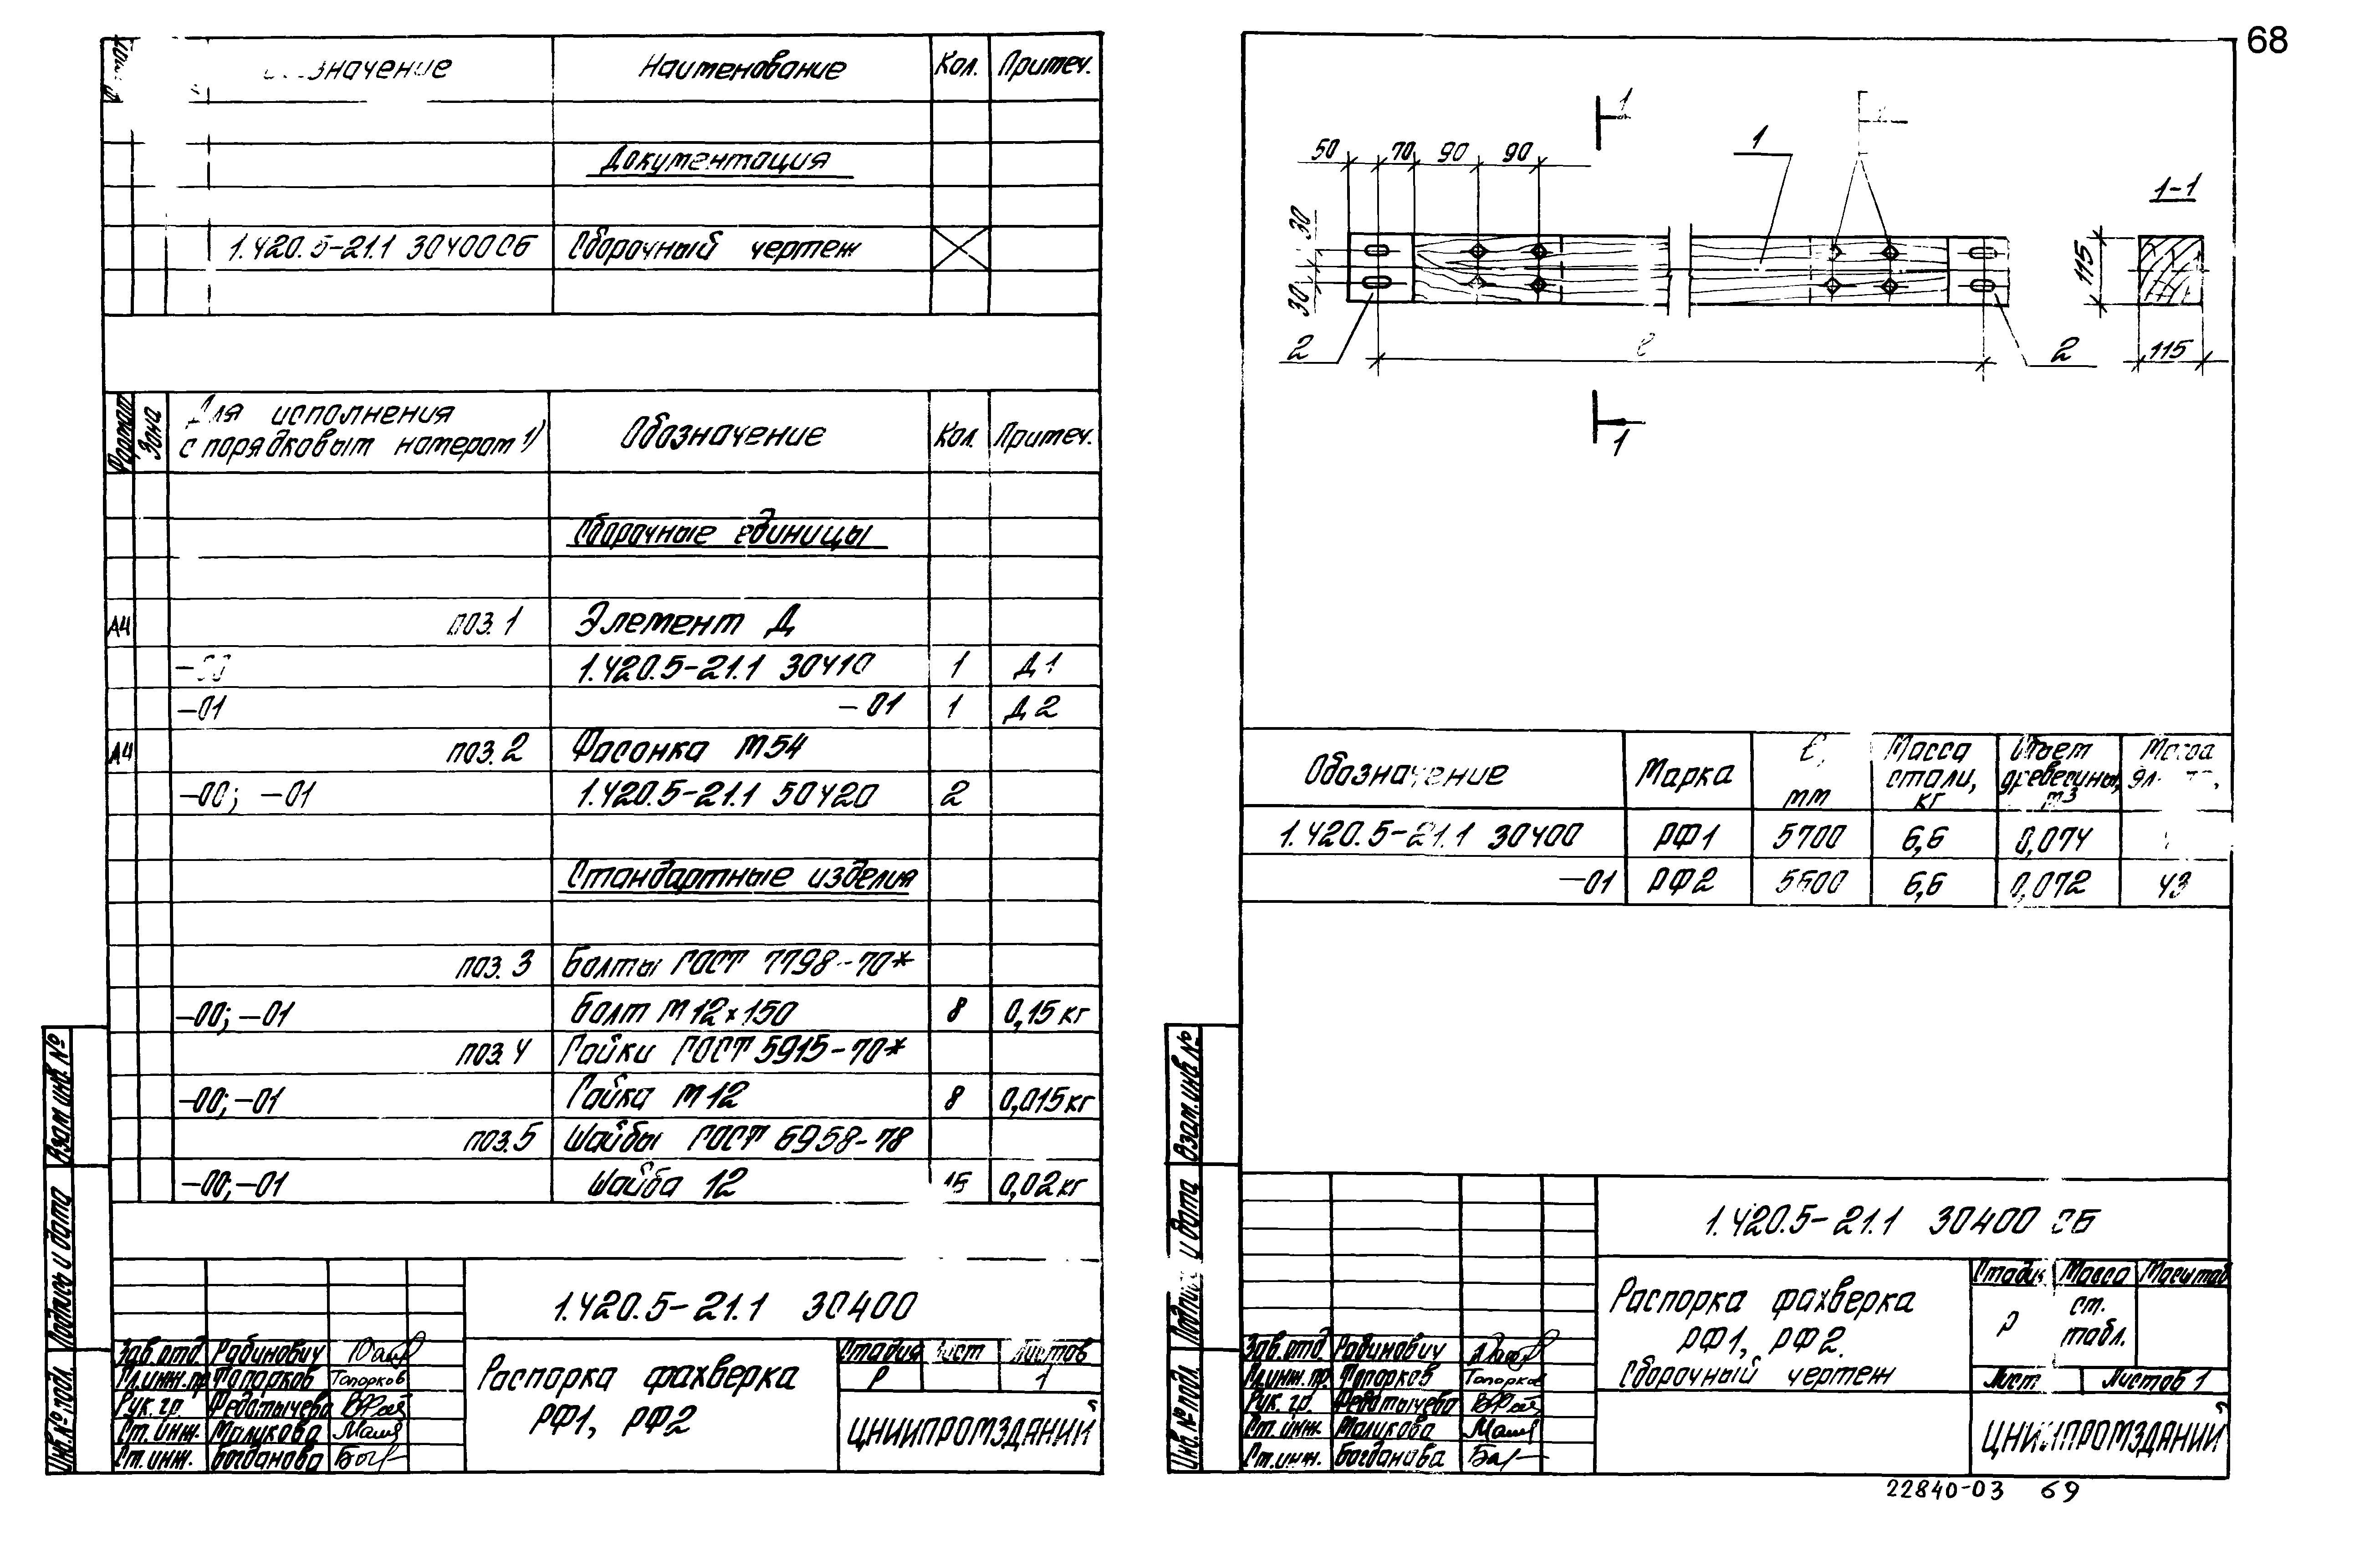 68
Обозначение Наименование Кол. Примеч.
Документация
1.420.5-21.1 30400СБ Сборочный чертеж
Формат Зона Для исполнения с порядковым номером 1) Обозначение Кол. Примеч.
Сборочные единицы
А4 поз. 1 Элемент Д
-00 1.420.5-21.1 30410 1 Д1
-01 -01 1 Д2
А4 поз. 2 Фасонка М54
-00; -01 1.420.5-21.1 50420 2
Стандартные изделия
поз. 3 Болты ГОСТ 7798-70*
-00; -01 Болт М12×150 8 0,15 кг
поз. 4 Гайки ГОСТ 5915-70*
-00; -01 Гайка М12 8 0,015 кг
поз. 5 Шайбы ГОСТ 6958-78
-00; -01 Шайба 12 0,02 кг
Взам. инв. №
Подпись и дата
Инв. № подл.
1.420.5-21.1 30400
Зав. отд. Рабинович
Гл. инж. пр. Топорков Топорков
Рук. гр. Федотычева
Ст. инж. Маликова
Ст. инж. Богданова
Распорка фахверка
РФ1, РФ2
Стадия Лист Листов
Р 1
ЦНИИПРОМЗДАНИЙ
1
50 70 90 90
1
1-1
30
30
115
2
ℓ
2
115
1
Обозначение Марка ℓ, мм Масса стали, кг Объем древесины, м3 Масса
1.420.5-21.1 30400 РФ1 5700 6,6 0,074
-01 РФ2 5600 6,6 0,072 43
Взам. инв. №
Подпись и дата
Инв. № подл.
1.420.5-21.1 30400 СБ
Зав. отд. Рабинович
Гл. инж. пр. Топорков Топорков
Рук. гр. Федотычева
Ст. инж. Маликова
Ст. инж. Богданова
Распорка фахверка
РФ1, РФ2.
Сборочный чертеж
Стадия Масса Масштаб
Р ст. табл.
Лист Листов 1
ЦНИИПРОМЗДАНИЙ
22840-03 69